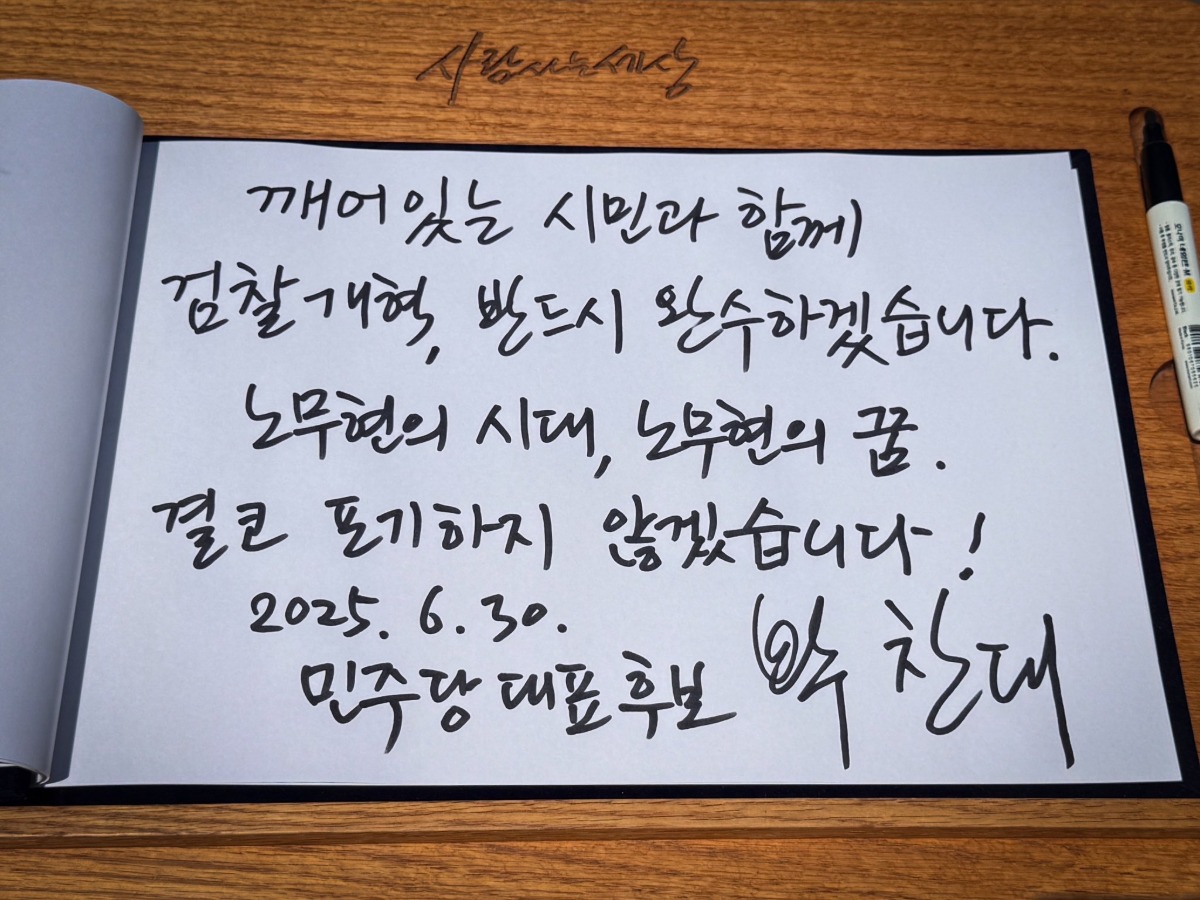 사람사는세상
깨어있는 시민과 함께
검찰개혁, 반드시 완수하겠습니다.
노무현의 시대, 노무현의 꿈.
결코 포기하지 않겠습니다!
2025. 6. 30.
민주당 대표 후보 박찬대
모나미 네임펜